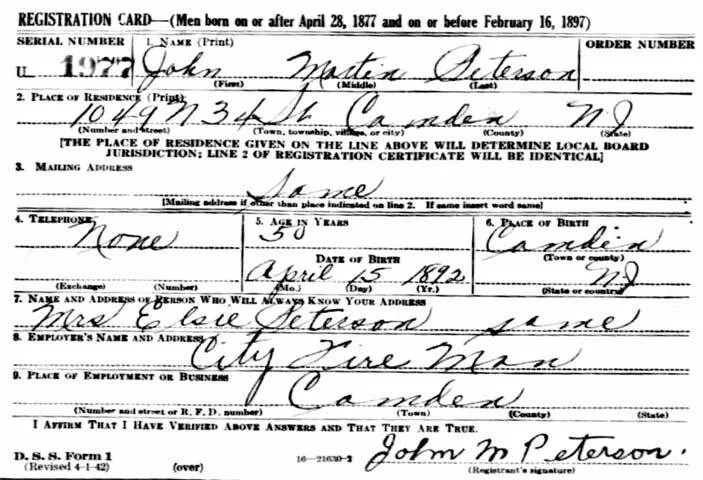 REGISTRATION CARD—(Men born on or after April 28, 1877 and on or before February 16, 1897)
SERIAL NUMBER 1. NAME (Print) ORDER NUMBER
U 1977 John Martin Peterson
(First) (Middle) (Last)
2. PLACE OF RESIDENCE (Print)
1049 N 34 St Camden NJ
(Number and street) (Town, township, village, or city) (County) (State)
[THE PLACE OF RESIDENCE GIVEN ON THE LINE ABOVE WILL DETERMINE LOCAL BOARD
JURISDICTION; LINE 2 OF REGISTRATION CERTIFICATE WILL BE IDENTICAL]
3. MAILING ADDRESS
Same
[Mailing address if other than place indicated on line 2. If same insert word same]
4. TELEPHONE 5. AGE IN YEARS 6. PLACE OF BIRTH
None 50 Camden
DATE OF BIRTH (Town or county)
April 15 1892 NJ
(Exchange) (Number) (Mo.) (Day) (Yr.) (State or country)
7. NAME AND ADDRESS OF PERSON WHO WILL ALWAYS KNOW YOUR ADDRESS
Mrs Elsie Peterson same
8. EMPLOYER'S NAME AND ADDRESS
City Fire Man
9. PLACE OF EMPLOYMENT OR BUSINESS
Camden
(Number and street or R. F. D. number) (Town) (County) (State)
I AFFIRM THAT I HAVE VERIFIED ABOVE ANSWERS AND THAT THEY ARE TRUE.
D. S. S. Form 1 John M Peterson.
(Revised 4-1-42) (over) 16—21630-2 (Registrant's signature)